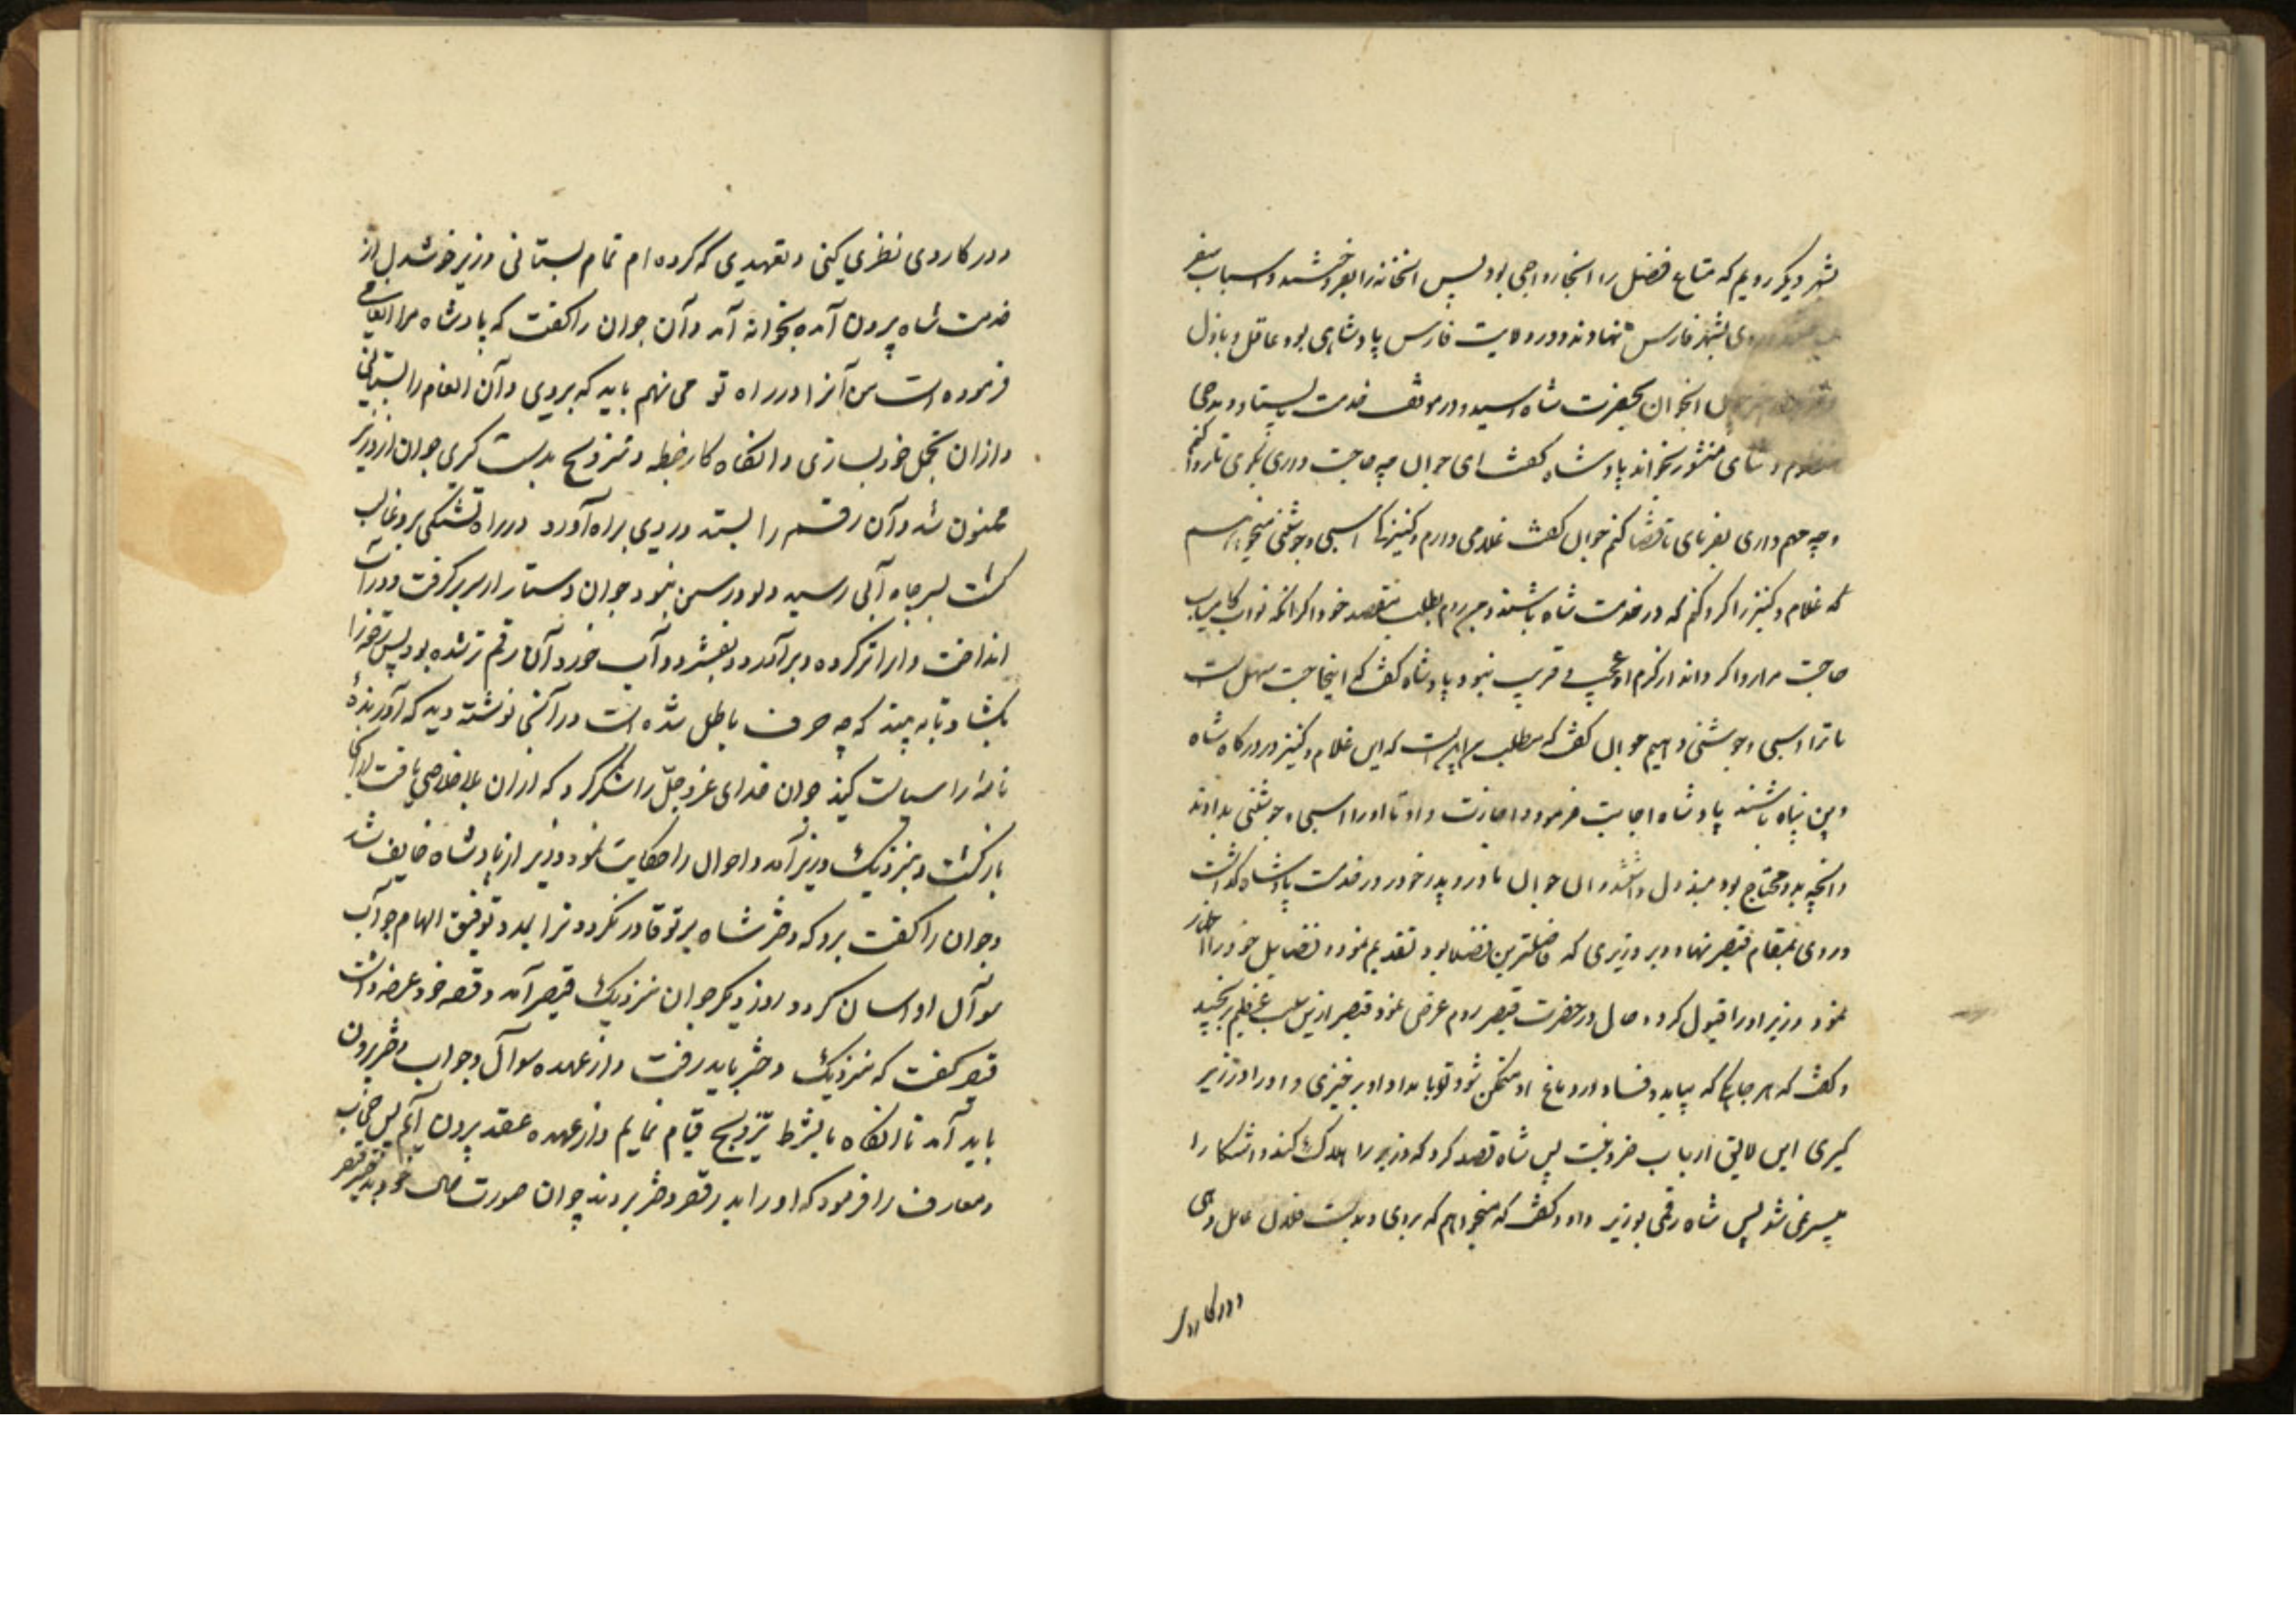 بشهر دیگر رویم که متاع فضل را آنجا رواجی بود پس آنخانه را بفروختند و اسباب سفر
روی بشهر فارس نهادند و در ولایت فارس پادشاهی بود عاقل و باذل
آنجوان بحضرت شاه رسید و در موقف خدمت بیستاد و مدحی
منظوم و ثنای منثور بخواند پادشاه کفت ای جوان چه حاجت داری بکوی تا روا کنم
و چه مهم داری بفرمای تا قضا کنم جوان کفت غلامی دارم و کنیزکی اسبی و جوشنی میخواهم
که غلام و کنیز را کرو کنم که در خدمت شاه باشند و من روم بطلب مقصد خود اکر آنکه نواب کامیاب
حاجت مرا روا کرداند از کرم او عجب و غریب نبود پادشاه کفت که اینحاجت سهل است
ما ترا اسبی و جوشنی دهیم جوان کفت که مطلب من اینست که این غلام و کنیز در درکاه شاه
دین پناه باشند پادشاه اجابت فرمود و اجازت داد تا او را اسبی و جوشنی بدادند
و آنچه بدو محتاج بود مبذول داشتند آن جوان مادر و پدر خود در خدمت پادشاه کذاشت
و روی بمقام قیصر نهاد و بر وزیری که فاضلترین فضلا بود تقدیم نمود و فضایل خود را اظهار
نمود وزیر او را قبول کرد و حال در حضرت قیصر روم عرض نمود قیصر ازین سبب عظیم برنجید
و کفت که هر جایی که بیاید و فساد در دماغ او متمکن شود تو با مداد او برخیزی و او را در زیر
کیری این لایق ارباب خرد نیست پس شاه قصد کرد که وزیر را هلاک کند و آشکارا
میسر نمی شد پس شاه رقمی بوزیر داد و کفت که میخواهم که بروی و بدست فلان عامل دهی
و در کار وی
و در کار وی نظری کنی و تعهدی که کرده ام تمام بستانی وزیر خوشدل از
خدمت شاه بیرون آمد بخانه آمد و آن جوان را کفت که پادشاه مرا انعامی
فرموده است من آنرا در راه تو می نهم باید که بروی و آن انعام را بستانی
و ازان تجمل خود بسازی و آنکاه کار خطبه و تزویج بدست کیری جوان از وزیر
ممنون شد و آن رقم را بستد و روی براه آورد در راه تشنکی برو غالب
کشت بسر چاه آبی رسید دلو و رسن نبود جوان دستار از سر برکرفت و در آن
انداخت و او را تر کرده و برآورد و بفشرد و آب خورد آن رقم تر شده بود پس رقم را
بکشاد تا به بیند که چه حرف باطل شده است در آنجا نوشته دید که آورندۀ
نامه را سیاست کنید جوان خدای عز و جل را شکر کرد که ازان بلا خلاصی یافت از آنجا
بازکشت و بنزدیک وزیر آمد و احوال را حکایت نمود وزیر از پادشاه خایف شد
و جوان را کفت برو که دختر شاه بر تو قادر نکردد و ترا بمدد توفیق الهام جواب
سوآل او آسان کردد روز دیکر جوان بنزدیک قیصر آمد و قصه خود عرضه داشت
قیصر کفت که بنزدیک دختر باید رفت و از عهده سوآل و جواب دختر بیرون
باید آمد تا آنکاه با بشرط تزویج قیام نمایم و از عهده عقد بیرون آیم پس حجاب
و معارف را فرمود که او را بدر قصر دختر بردند جوان صورت حال خود بدختر قیصر